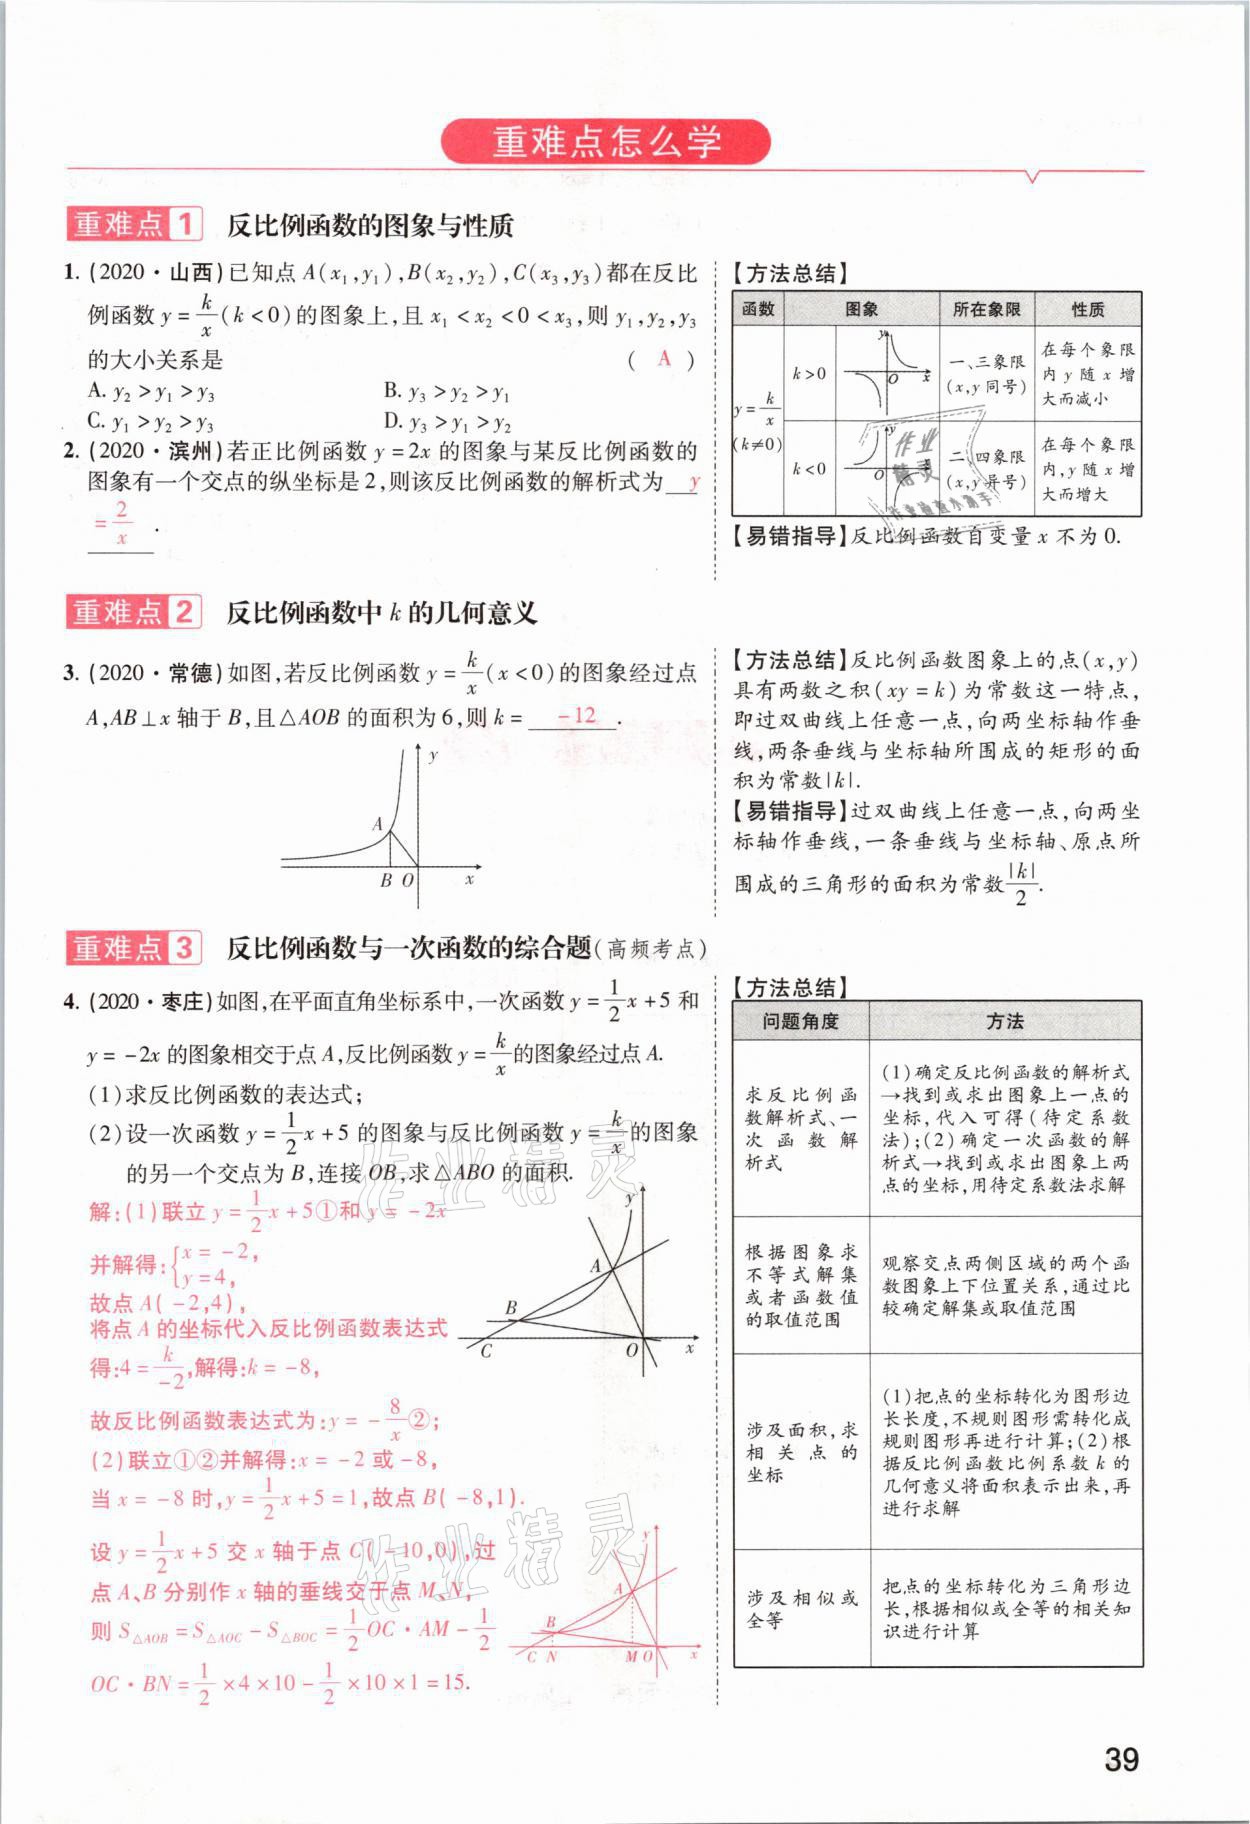 重难点怎么学
重难点1 反比例函数的图象与性质
1. (2020·山西)已知点 A(x₁,y₁),B(x₂,y₂),C(x₃,y₃)都在反比
例函数 y=k/x(k<0)的图象上,且 x₁<x₂<0<x₃,则 y₁,y₂,y₃
的大小关系是 ( A )
A. y₂>y₁>y₃ B. y₃>y₂>y₁
C. y₁>y₂>y₃ D. y₃>y₁>y₂
2. (2020·滨州)若正比例函数 y=2x 的图象与某反比例函数的
图象有一个交点的纵坐标是2,则该反比例函数的解析式为 y
=2/x .
【方法总结】
函数 图象 所在象限 性质
y=k/x
(k≠0)
k>0
y
O
x
一、三象限
(x,y同号)
在每个象限
内 y 随 x 增
大而减小
k<0
y
O
二、四象限
(x,y异号)
在每个象限
内,y 随 x 增
大而增大
【易错指导】反比例函数自变量 x 不为0.
重难点2 反比例函数中 k 的几何意义
3. (2020·常德)如图,若反比例函数 y=k/x(x<0)的图象经过点
A,AB⊥x 轴于 B,且△AOB 的面积为6,则 k= -12 .
y
A
B O x
【方法总结】反比例函数图象上的点(x,y)
具有两数之积(xy=k)为常数这一特点,
即过双曲线上任意一点,向两坐标轴作垂
线,两条垂线与坐标轴所围成的矩形的面
积为常数|k|.
【易错指导】过双曲线上任意一点,向两坐
标轴作垂线,一条垂线与坐标轴、原点所
围成的三角形的面积为常数|k|/2.
重难点3 反比例函数与一次函数的综合题(高频考点)
4. (2020·枣庄)如图,在平面直角坐标系中,一次函数 y=1/2x+5 和
y=-2x 的图象相交于点 A,反比例函数 y=k/x的图象经过点 A.
(1)求反比例函数的表达式;
(2)设一次函数 y=1/2x+5 的图象与反比例函数 y=k/x的图象
的另一个交点为 B,连接 OB,求△ABO 的面积.
解:(1)联立 y=1/2x+5①和 y=-2x
并解得:{x=-2,
y=4,
故点 A(-2,4),
将点 A 的坐标代入反比例函数表达式
得:4=k/-2,解得:k=-8,
故反比例函数表达式为:y=-8/x②;
(2)联立①②并解得:x=-2或-8,
当 x=-8时,y=1/2x+5=1,故点 B(-8,1).
设 y=1/2x+5 交 x 轴于点 C(-10,0),过
点 A、B 分别作 x 轴的垂线交于点 M、N,
则 S△AOB=S△AOC-S△BOC=1/2OC·AM-1/2
OC·BN=1/2×4×10-1/2×10×1=15.
y
A
B
C O x
y
A
B
C N M O x
【方法总结】
问题角度 方法
求反比例函
数解析式、一
次函数解
析式
(1)确定反比例函数的解析式
→找到或求出图象上一点的
坐标,代入可得(待定系数
法);(2)确定一次函数的解
析式→找到或求出图象上两
点的坐标,用待定系数法求解
根据图象求
不等式解集
或者函数值
的取值范围
观察交点两侧区域的两个函
数图象上下位置关系,通过比
较确定解集或取值范围
涉及面积,求
相关点的
坐标
(1)把点的坐标转化为图形边
长长度,不规则图形需转化成
规则图形再进行计算;(2)根
据反比例函数比例系数 k 的
几何意义将面积表示出来,再
进行求解
涉及相似或
全等
把点的坐标转化为三角形边
长,根据相似或全等的相关知
识进行计算
作业精灵
作业精灵
作业
精灵
39